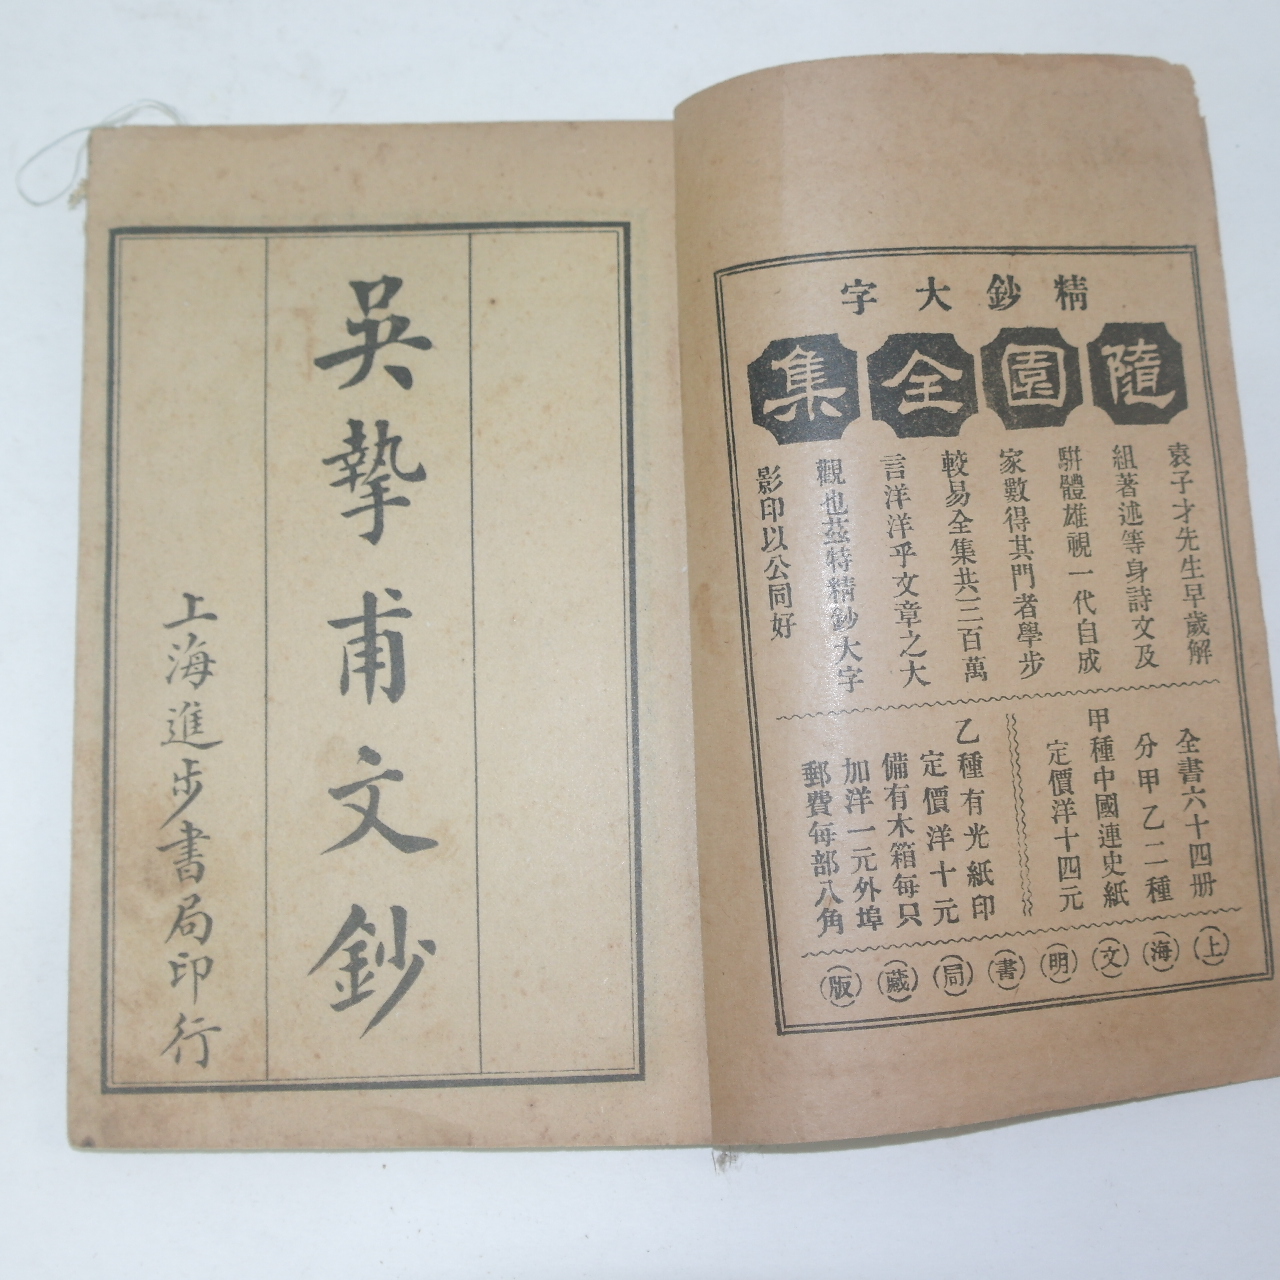 精鈔大字
隨園全集
袁子才先生早歲解
組著述等身詩文及
駢體雄視一代自成
家數得其門者學步
較易全集共三百萬
言洋洋乎文章之大
觀也茲特精鈔大字
影印以公同好
全書六十四册
分甲乙二種
甲種中國連史紙
定價洋十四元
乙種有光紙印
定價洋十元
備有木箱每只
加洋一元外埠
郵費每部八角
上海文明書局藏版
吳摯甫文鈔
上海進步書局印行